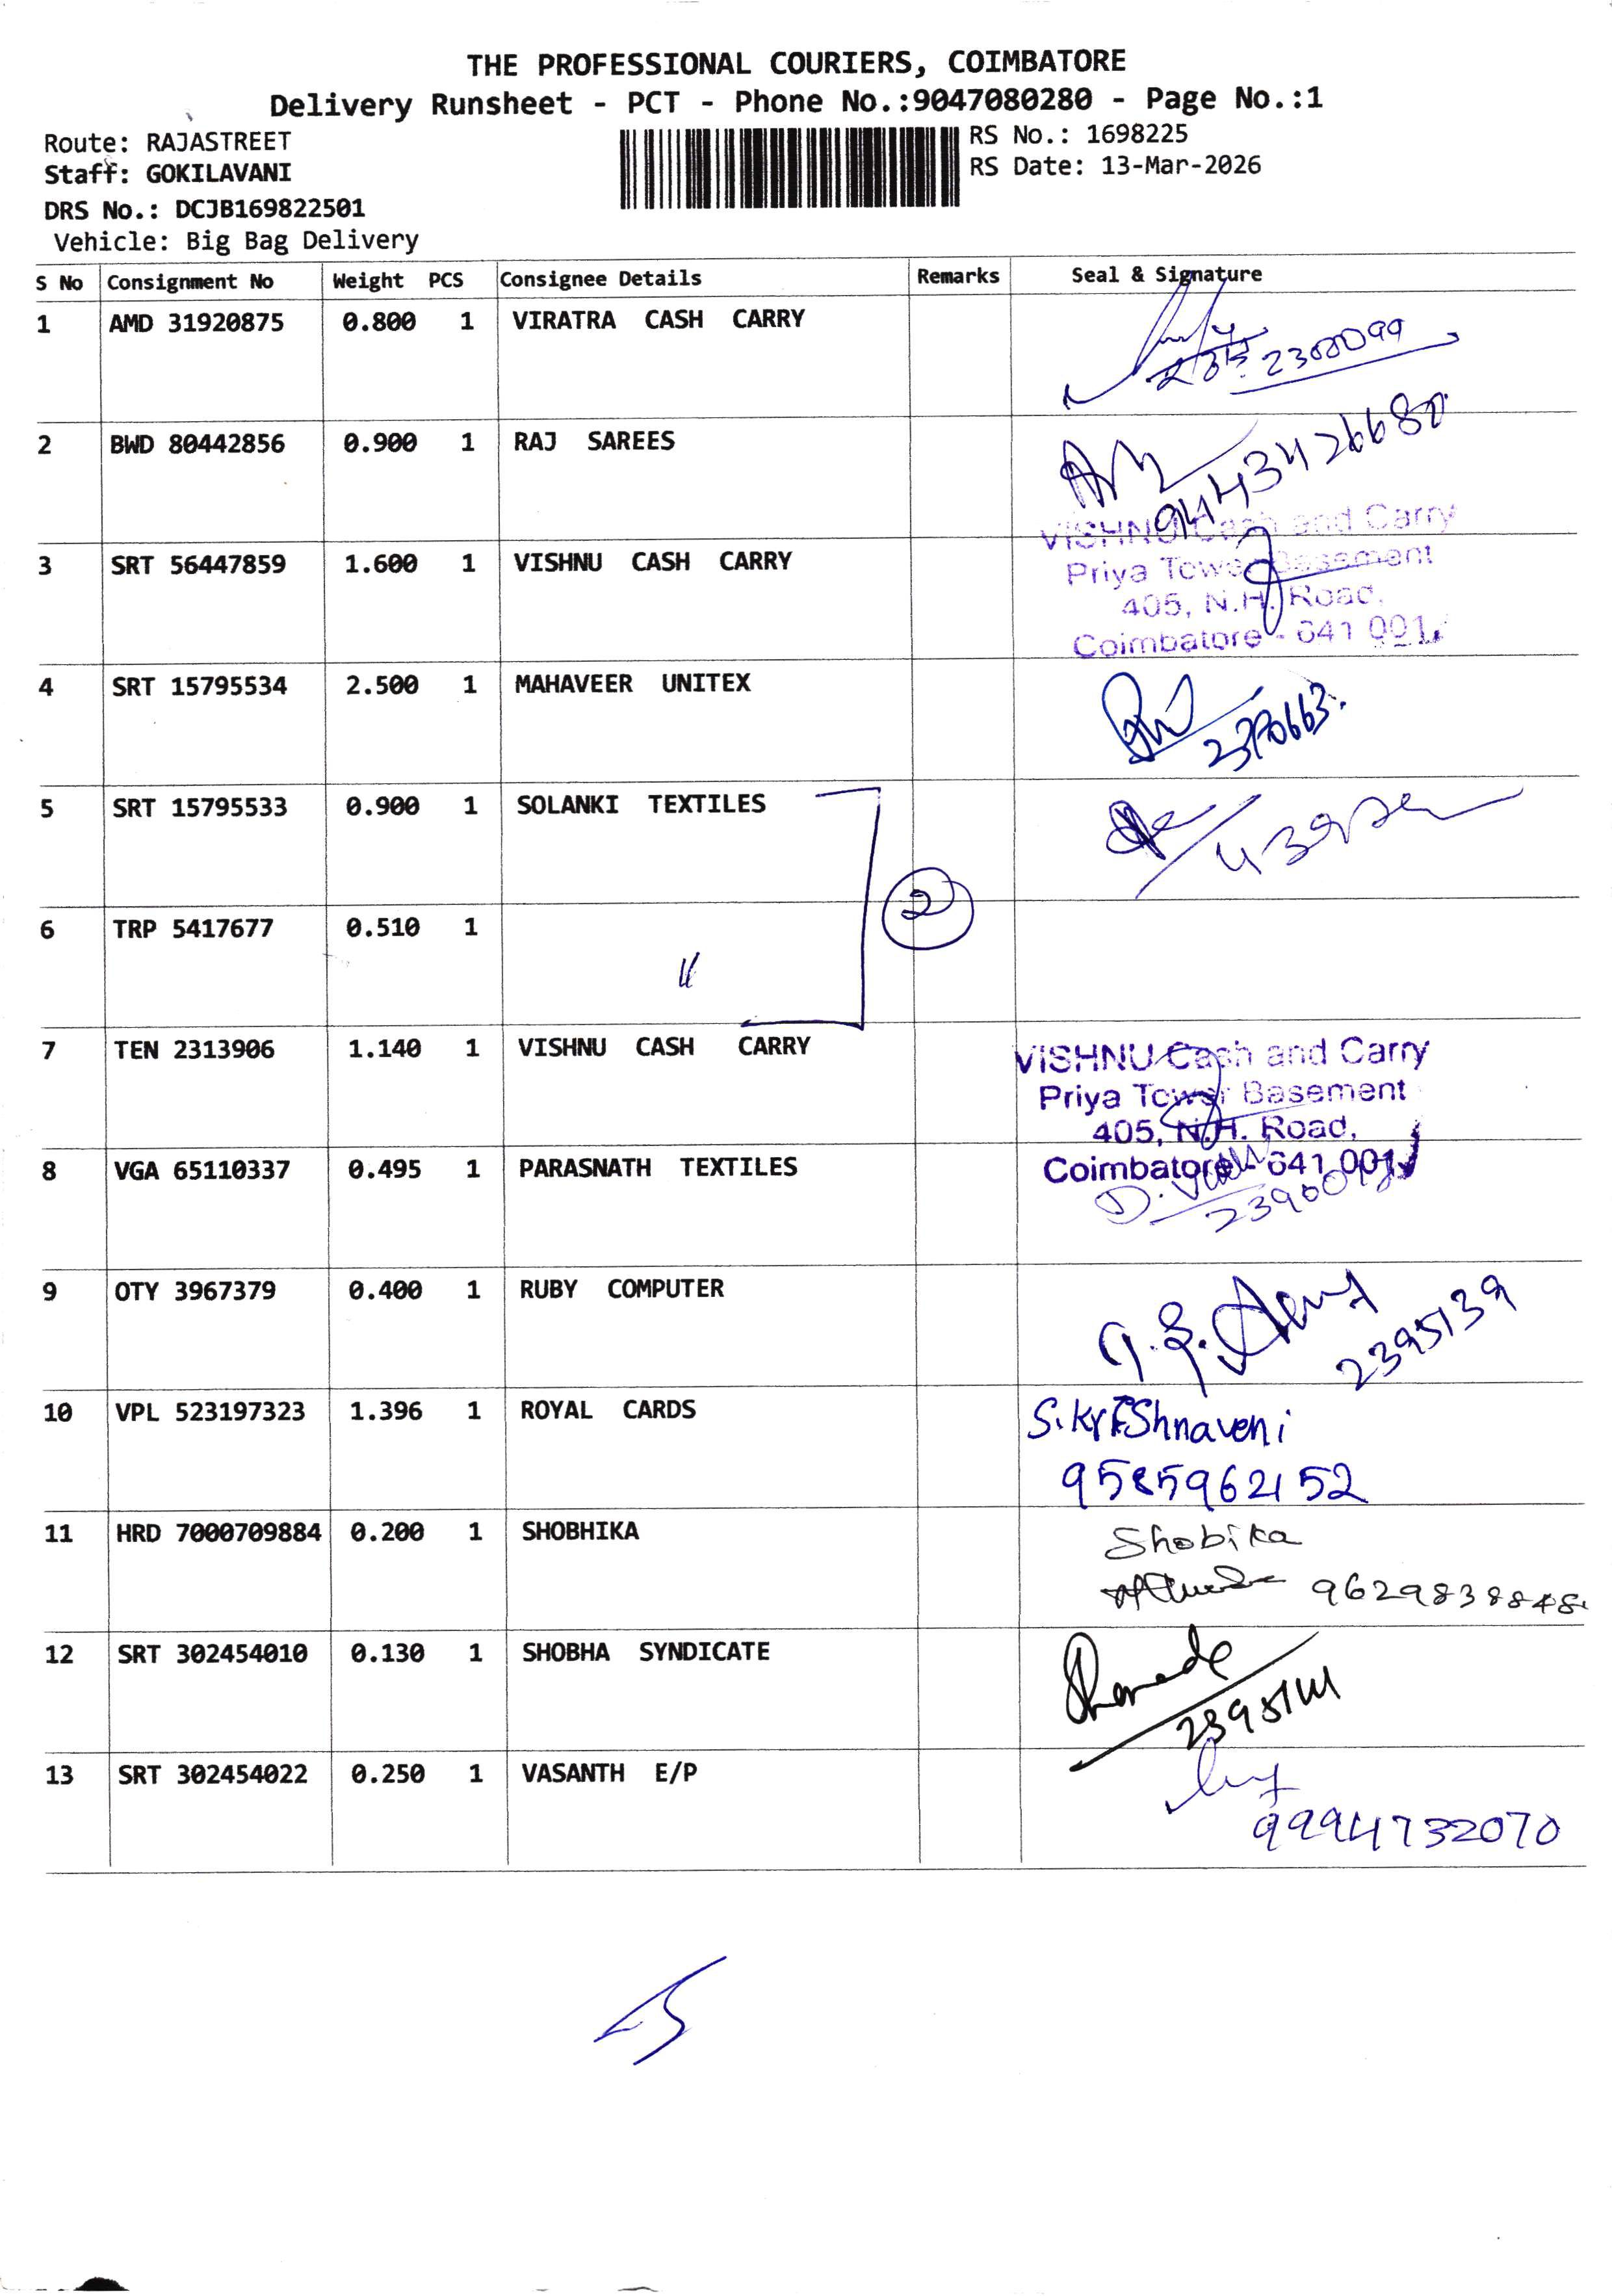 THE PROFESSIONAL COURIERS, COIMBATORE
Delivery Runsheet - PCT - Phone No.:9047080280 - Page No.:1
Route: RAJASTREET
RS No.: 1698225
Staff: GOKILAVANI
RS Date: 13-Mar-2026
DRS No.: DCJB169822501
Vehicle: Big Bag Delivery
S No Consignment No Weight PCS Consignee Details Remarks Seal & Signature
1 AMD 31920875 0.800 1 VIRATRA CASH CARRY
2 BWD 80442856 0.900 1 RAJ SAREES
VISHNU Cash and Carry
3 SRT 56447859 1.600 1 VISHNU CASH CARRY
Priya Tower Basement
405, N.H. Road,
Coimbatore - 641 001.
4 SRT 15795534 2.500 1 MAHAVEER UNITEX
5 SRT 15795533 0.900 1 SOLANKI TEXTILES
2
6 TRP 5417677 0.510 1
7 TEN 2313906 1.140 1 VISHNU CASH CARRY
VISHNU Cash and Carry
Priya Tower Basement
405, N.H. Road,
Coimbatore - 641 001.
8 VGA 65110337 0.495 1 PARASNATH TEXTILES
9 OTY 3967379 0.400 1 RUBY COMPUTER
2395139
10 VPL 523197323 1.396 1 ROYAL CARDS
S.Krishnaveni
9585962152
11 HRD 7000709884 0.200 1 SHOBHIKA
Shobika
9629838848
12 SRT 302454010 0.130 1 SHOBHA SYNDICATE
13 SRT 302454022 0.250 1 VASANTH E/P
9994732070